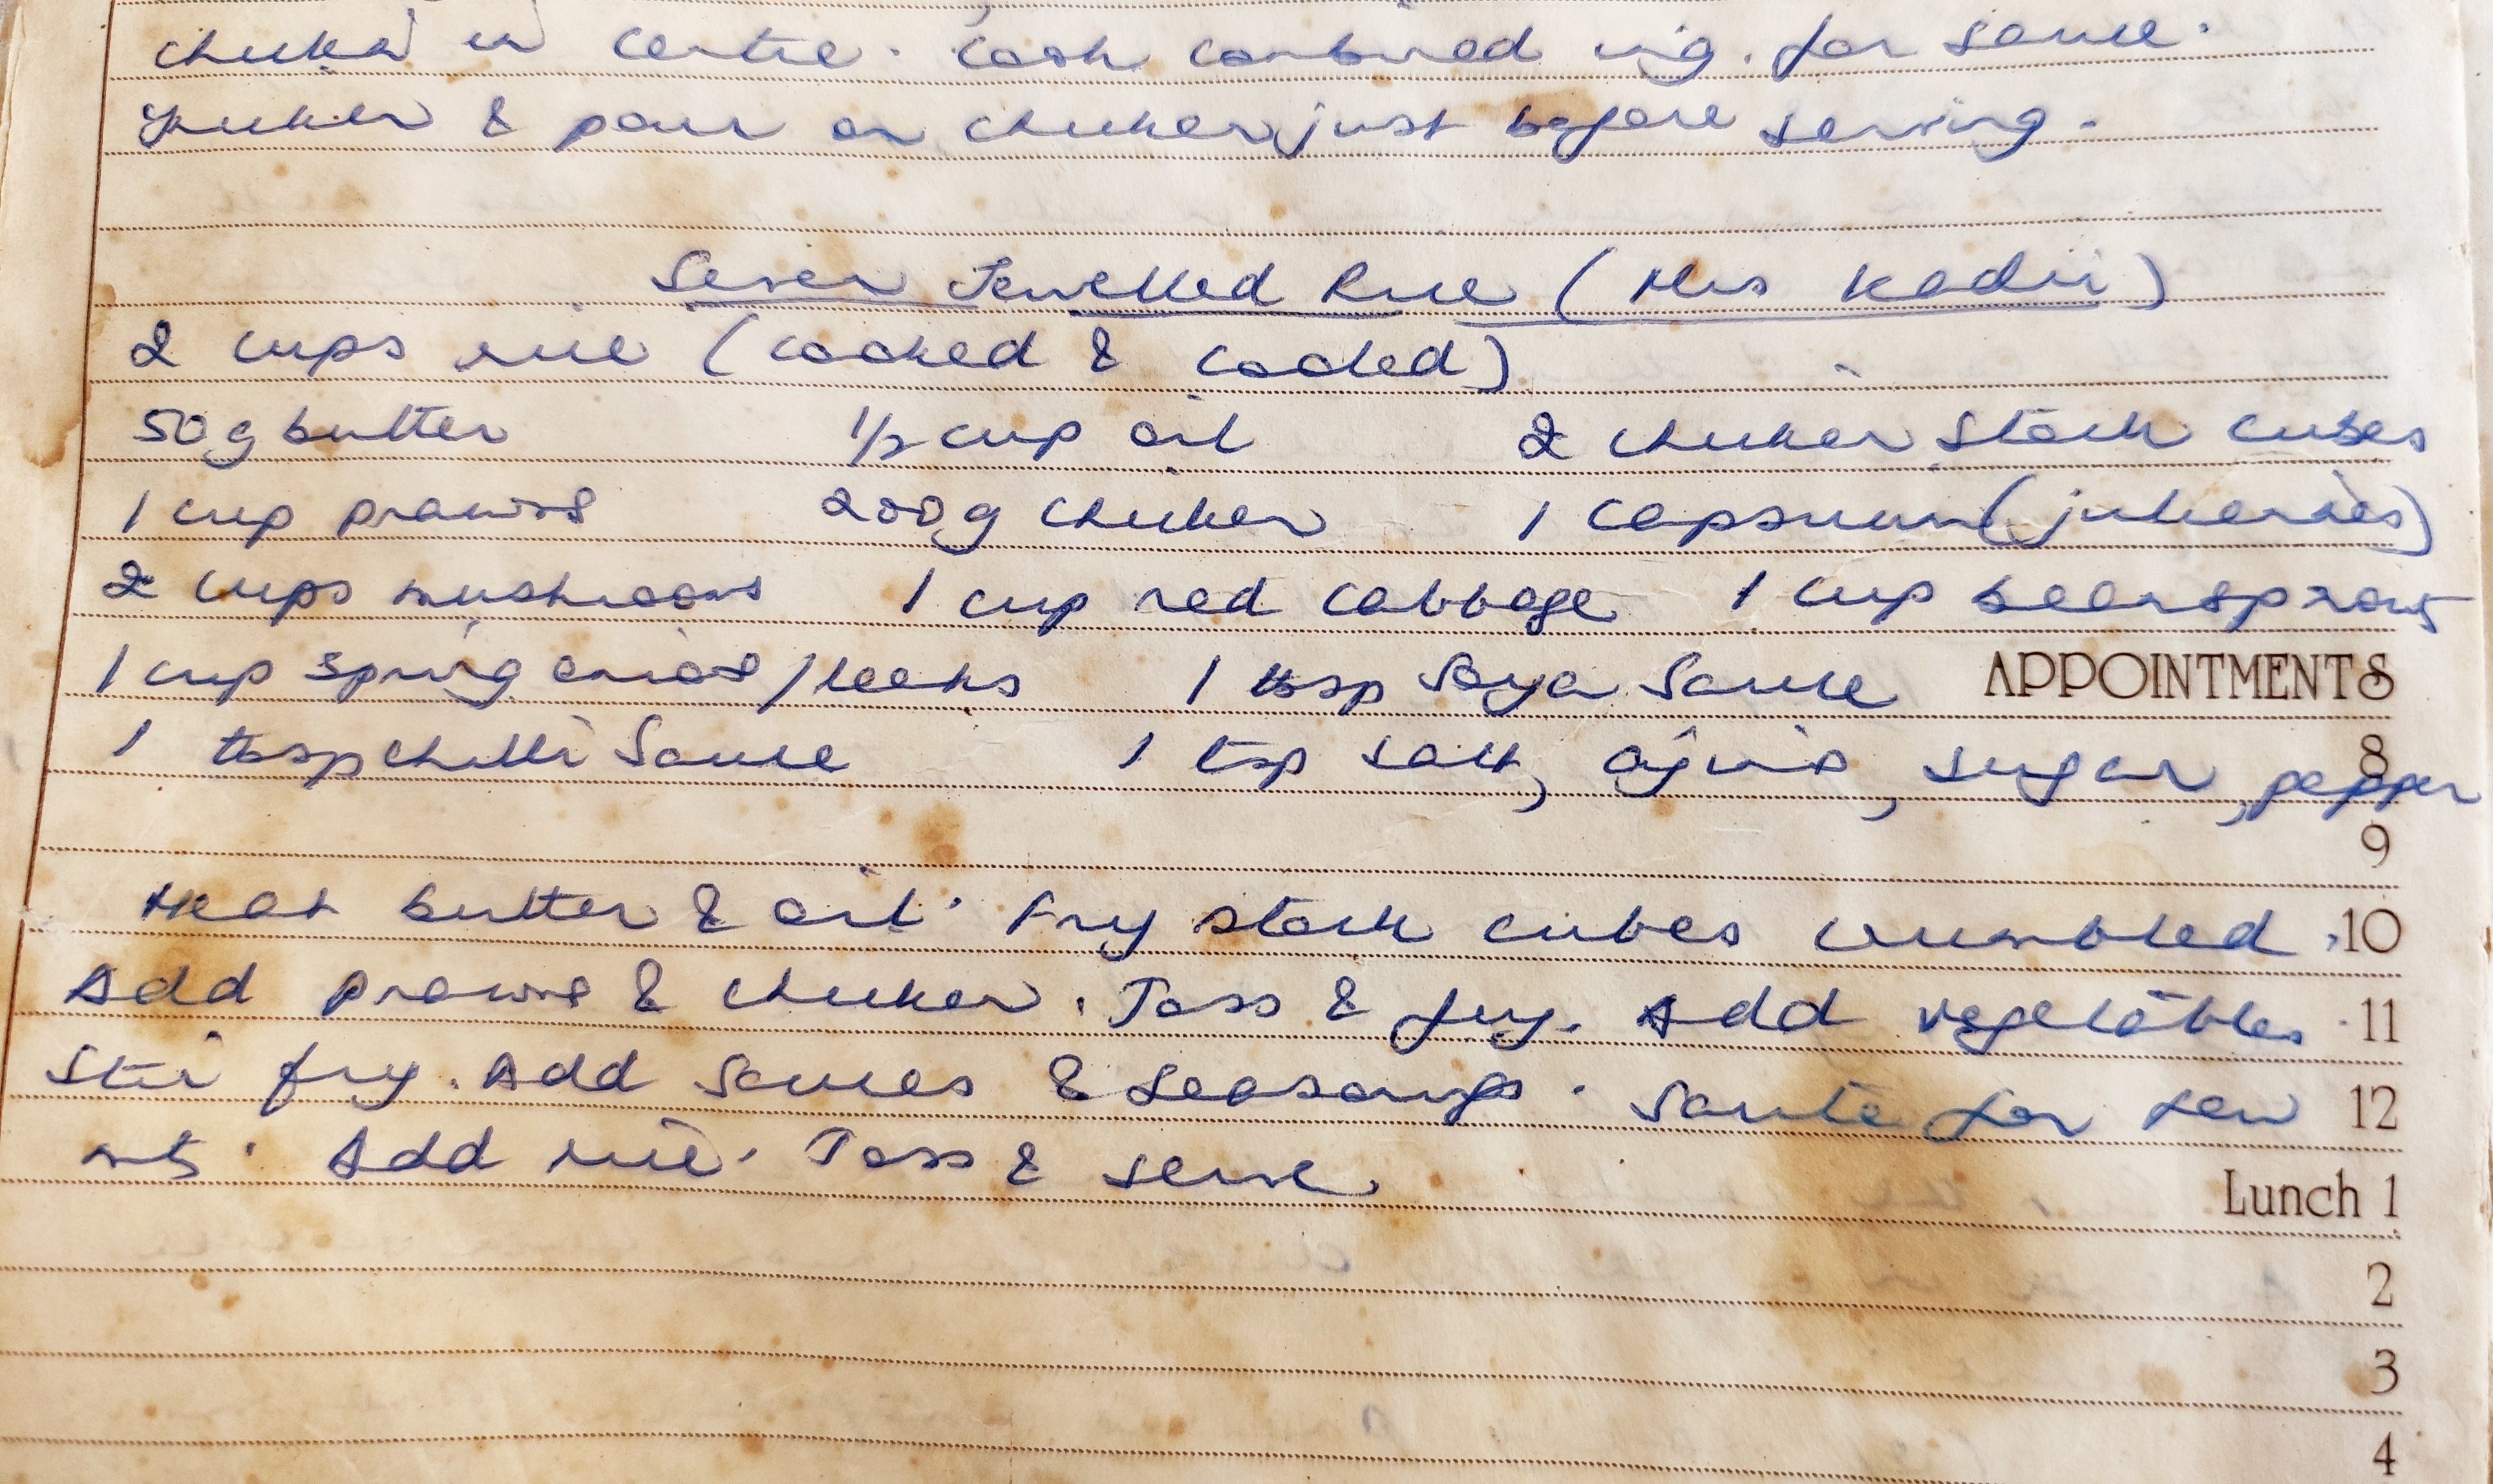 chicken in centre. Cook combined ing. for sauce.
thicken & pour on chicken just before serving.
Seven Jewelled Rice (Mrs Kadir)
2 cups rice (cooked & cooled)
50 g butter 1/2 cup oil 2 chicken stock cubes
1 cup prawns 200g chicken 1 capsicum (juliennes)
2 cups mushrooms 1 cup red cabbage 1 cup beansprouts
1 cup spring onions/leeks 1 tbsp Soya Sauce APPOINTMENTS
1 tbsp chilli Sauce 1 tsp salt, ajino, sugar, pepper 8
9
Heat butter & oil. Fry stock cubes crumbled. 10
Add prawns & chicken. Toss & fry. Add vegetables. 11
Stir fry. Add Sauces & Seasonings. Saute for few 12
mts. Add rice. Toss & serve.
Lunch 1
2
3
4